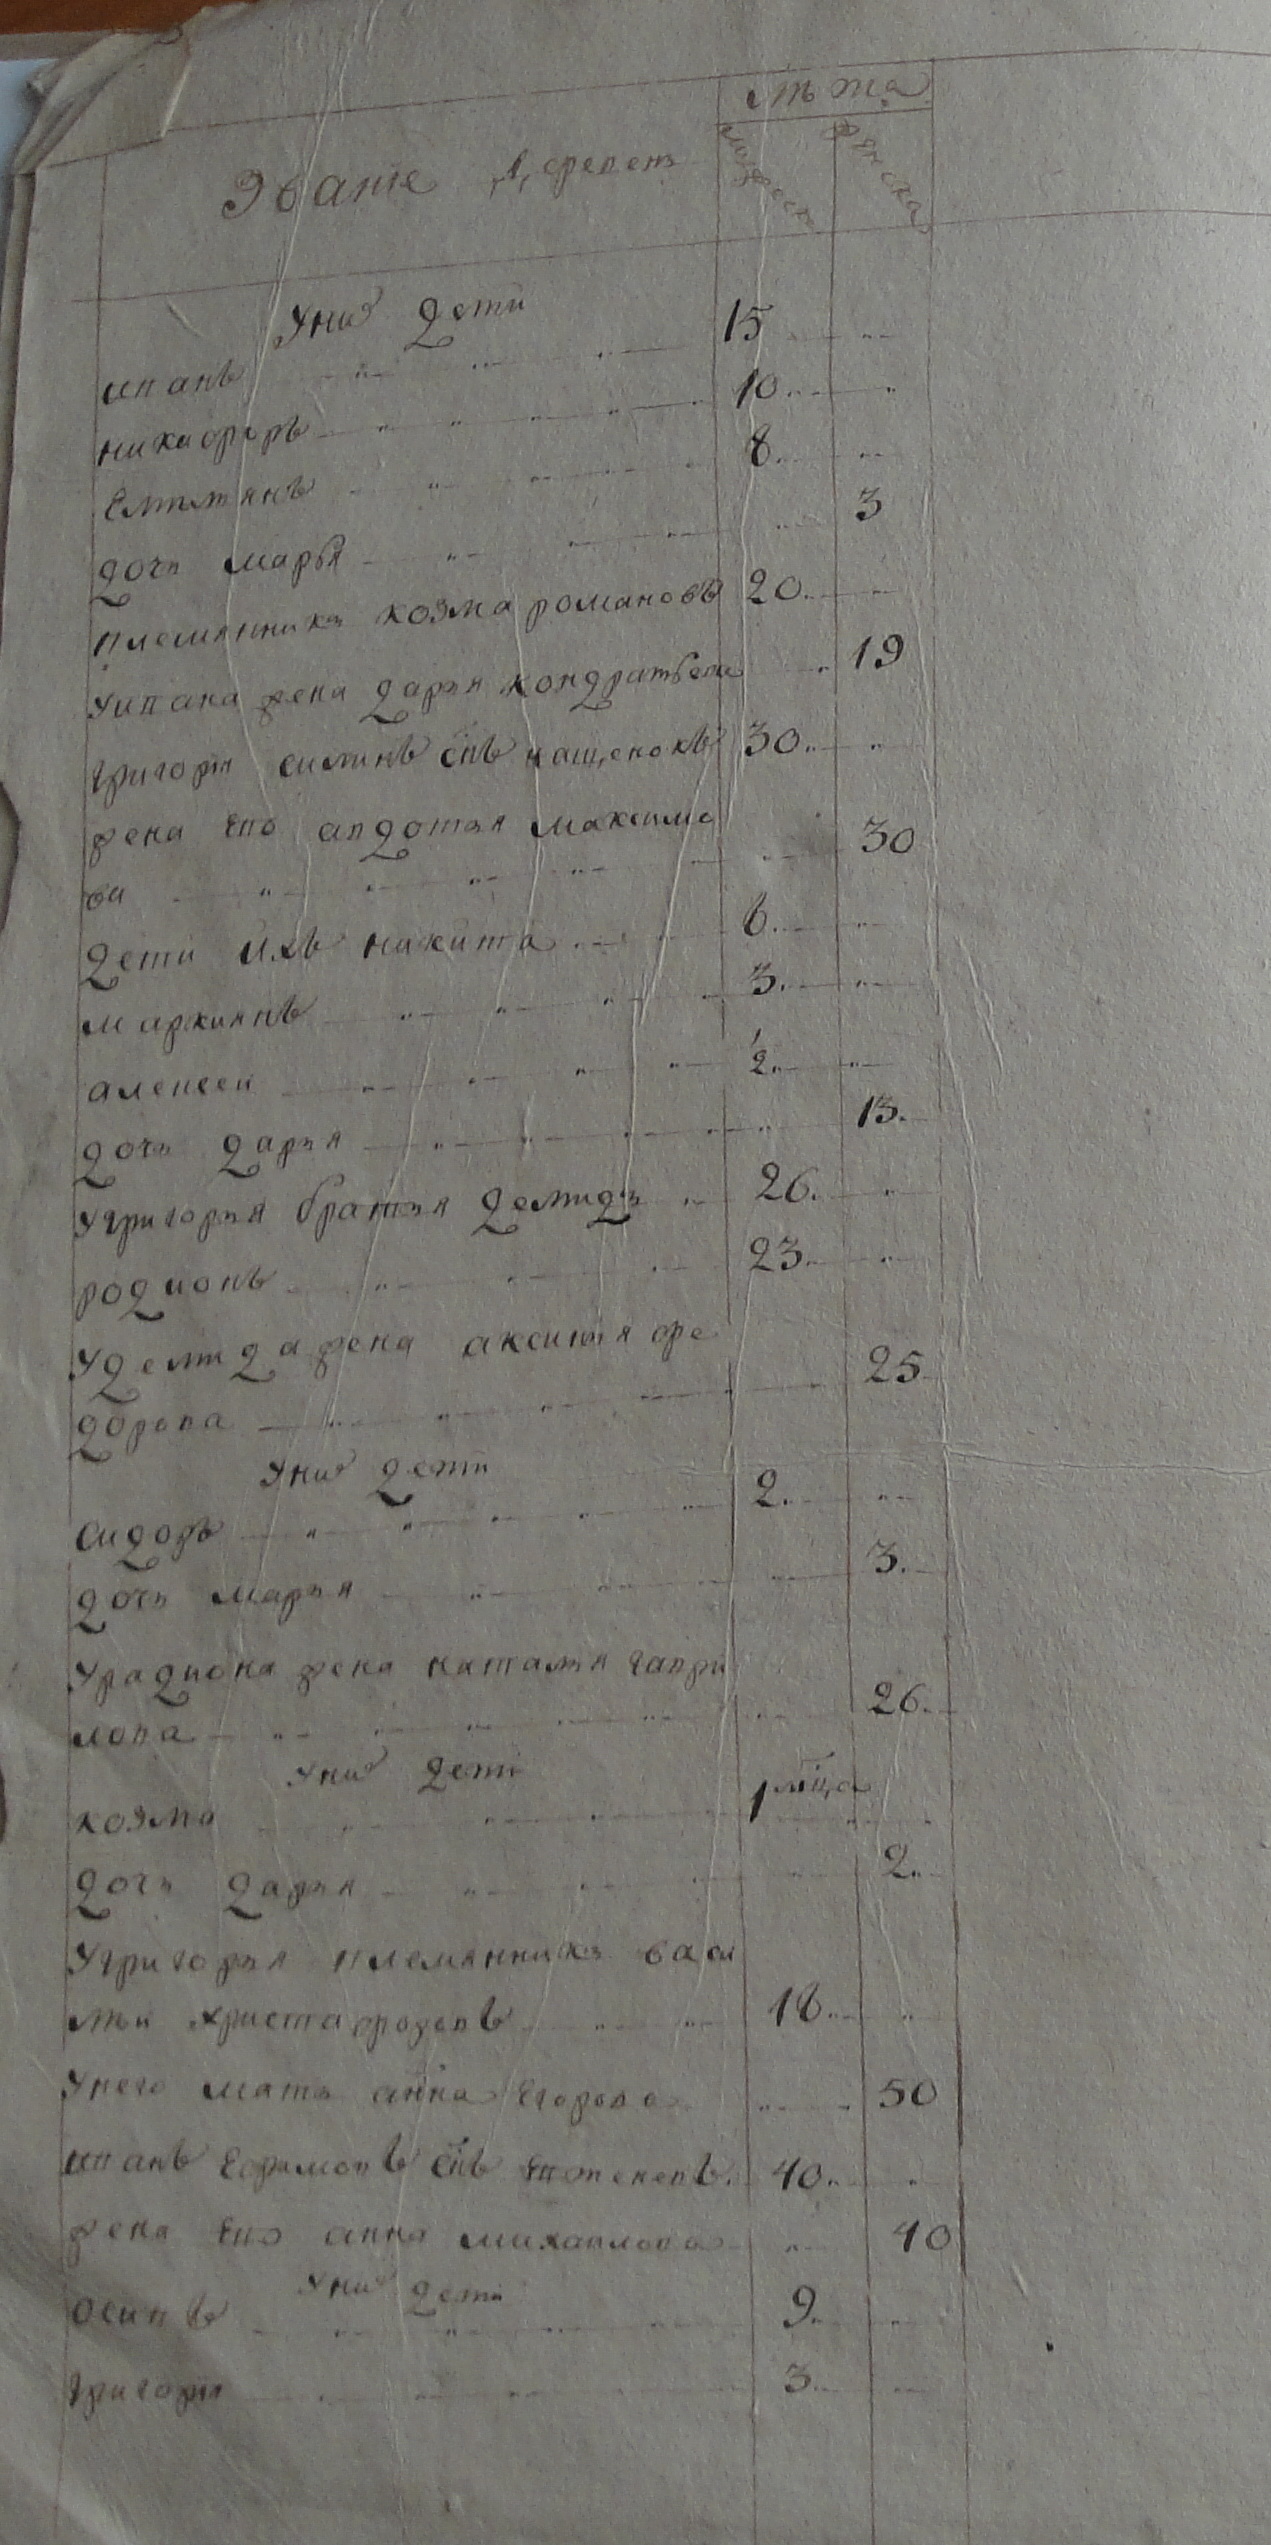 лѣта
Званіе
мужеска
женска
У них дети
иванъ 15
никифоръ 10
Емельянъ 8
дочь марья 3
племянникъ козма романовъ 20
У ивана жена дарья кондратьева 19
григорій силинъ снъ 30
жена его авдотья максимо
ва 30
дети ихъ никита 6
маркиянъ 3
алексей 1/2
дочь дарья 13
У григорья братья демидъ 26
родионъ 23
У демида жена аксинья фе
дорова 25
У них дети
сидоръ 2
дочь марья 3
У радиона жена наталья гаври
лова 26
У них дети
козма 1 мца
дочь дарья 2
У григорья племянникъ васи
лей христафоровъ 18
У него мать анна Егорова 50
иванъ Ефимовъ снъ 40
жена Его анна михаилова 40
У них дети
осипъ 9
григорій 3